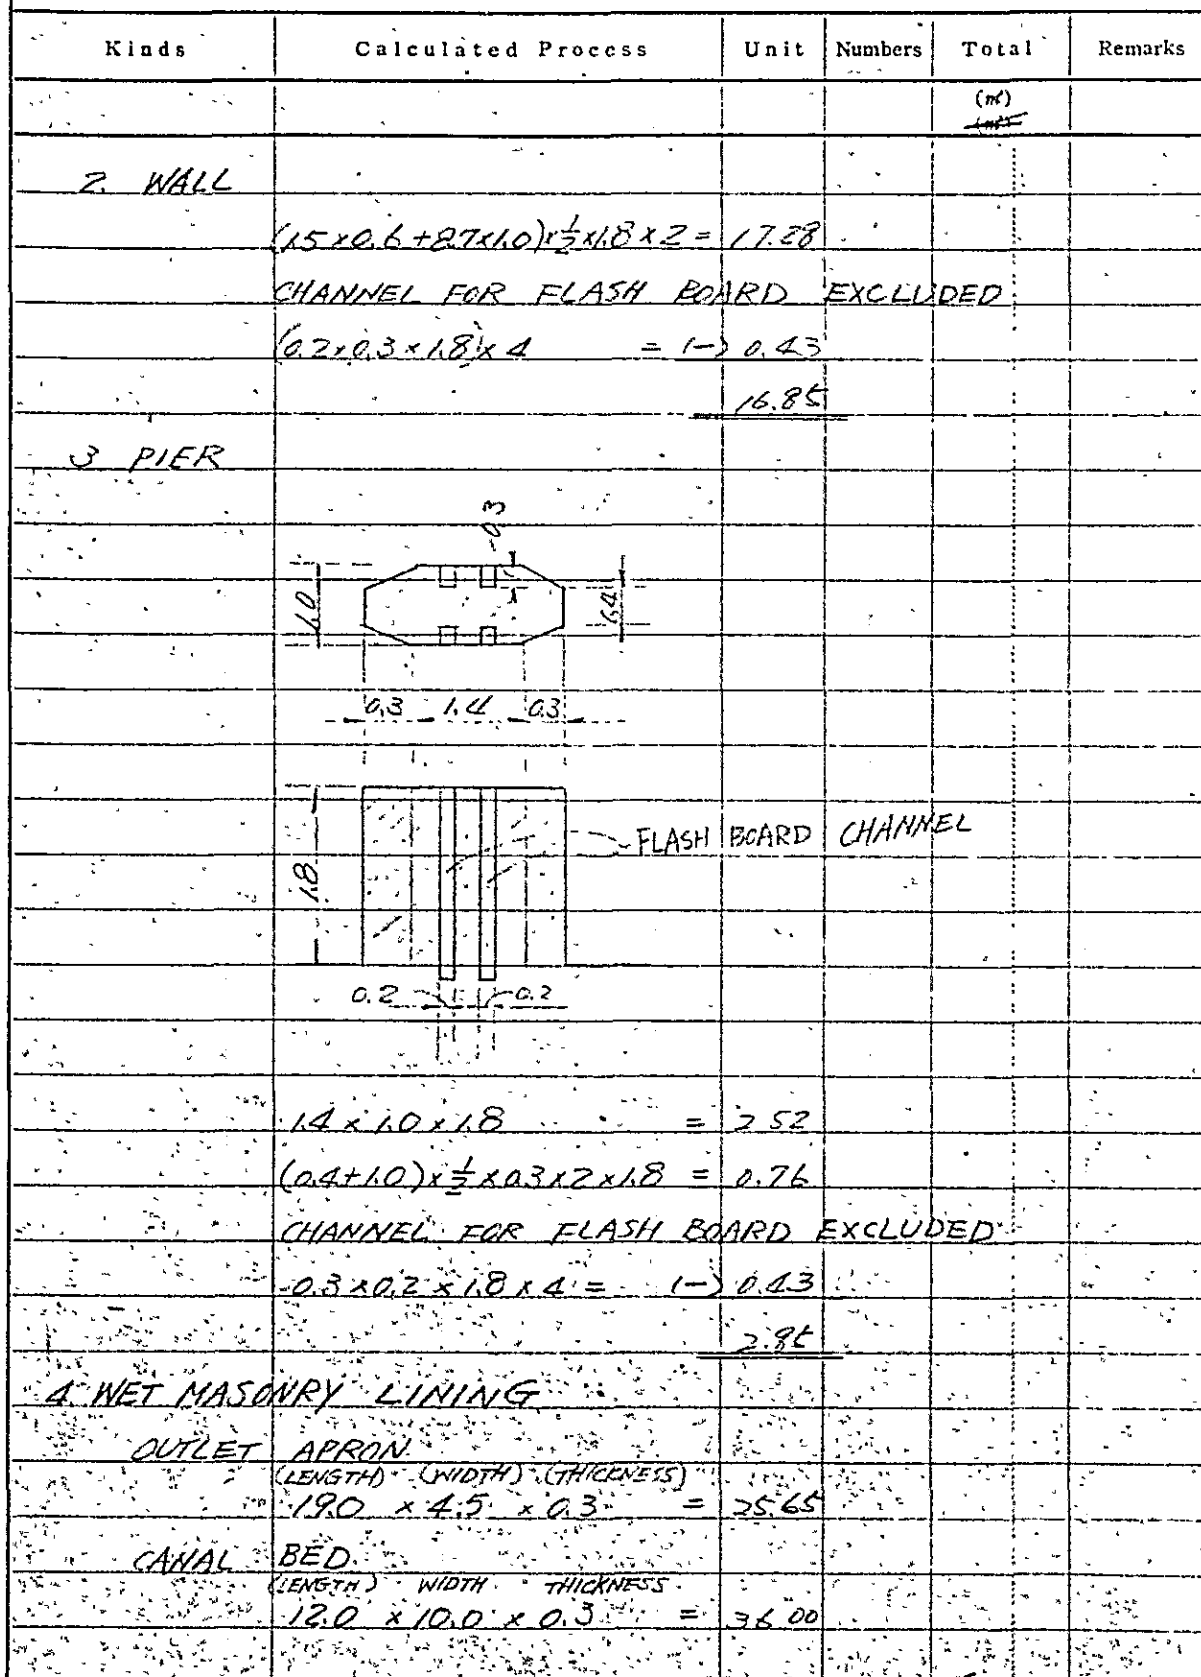 Kinds Calculated Process Unit Numbers Total Remarks
(m³)
2. WALL
(1.5×0.6+8.7×1.0)×½×1.8×2= 17.28
CHANNEL FOR FLASH BOARD EXCLUDED
(0.2×0.3×1.8)×4 = (-) 0.43
16.85
3 PIER
0.3
1.0
0.4
0.3 1.4 0.3
FLASH BOARD CHANNEL
1.8
0.2 0.2
1.4×1.0×1.8 = 2.52
(0.4+1.0)×½×0.3×2×1.8 = 0.76
CHANNEL FOR FLASH BOARD EXCLUDED
0.3×0.2×1.8×4= (-) 0.43
2.85
4. WET MASONRY LINING
OUTLET APRON
(LENGTH) (WIDTH) (THICKNESS)
19.0 × 4.5 × 0.3 = 25.65
CANAL BED
(LENGTH) WIDTH THICKNESS
12.0 × 10.0 × 0.3 = 36.00